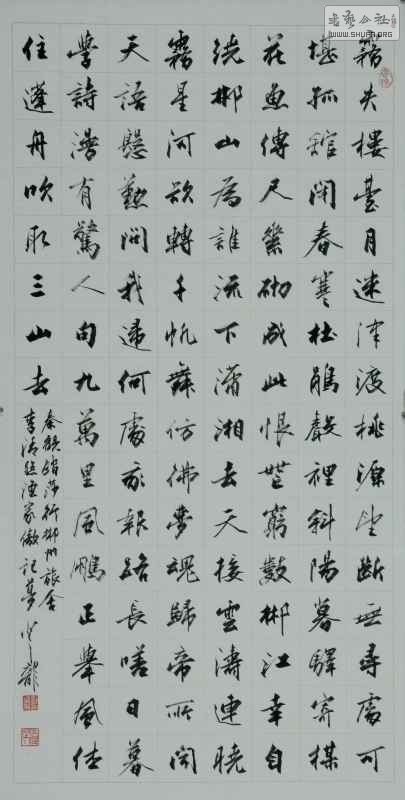 霧失樓臺月迷津渡桃源望斷無尋處可
堪孤館閉春寒杜鵑聲裡斜陽暮驛寄梅
花魚傳尺素砌成此恨無窮數郴江幸自
繞郴山為誰流下瀟湘去天接雲濤連曉
霧星河欲轉千帆舞仿佛夢魂歸帝所聞
天語慇懃問我歸何處我報路長嗟日暮
學詩謾有驚人句九萬里風鵬正舉風休
住蓬舟吹取三山去
秦觀踏莎行郴州旅舍
李清照漁家傲記夢 龍
書藝公社
WWW.SHUFA.ORG